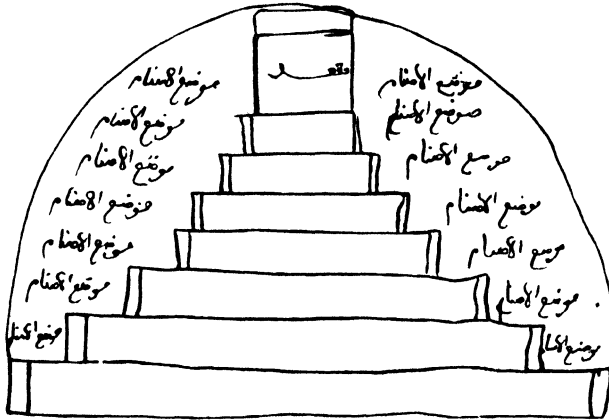 موضع الاصنام
مقعد
موضع الاصنام
موضع الاصنام
موضع الاصنام
موضع الاصنام
موضع الاصنام
موضع الاصنام
موضع الاصنام
موضع الاصنام
موضع الاصنام
موضع الاصنام
موضع الاصنام
موضع
موضع